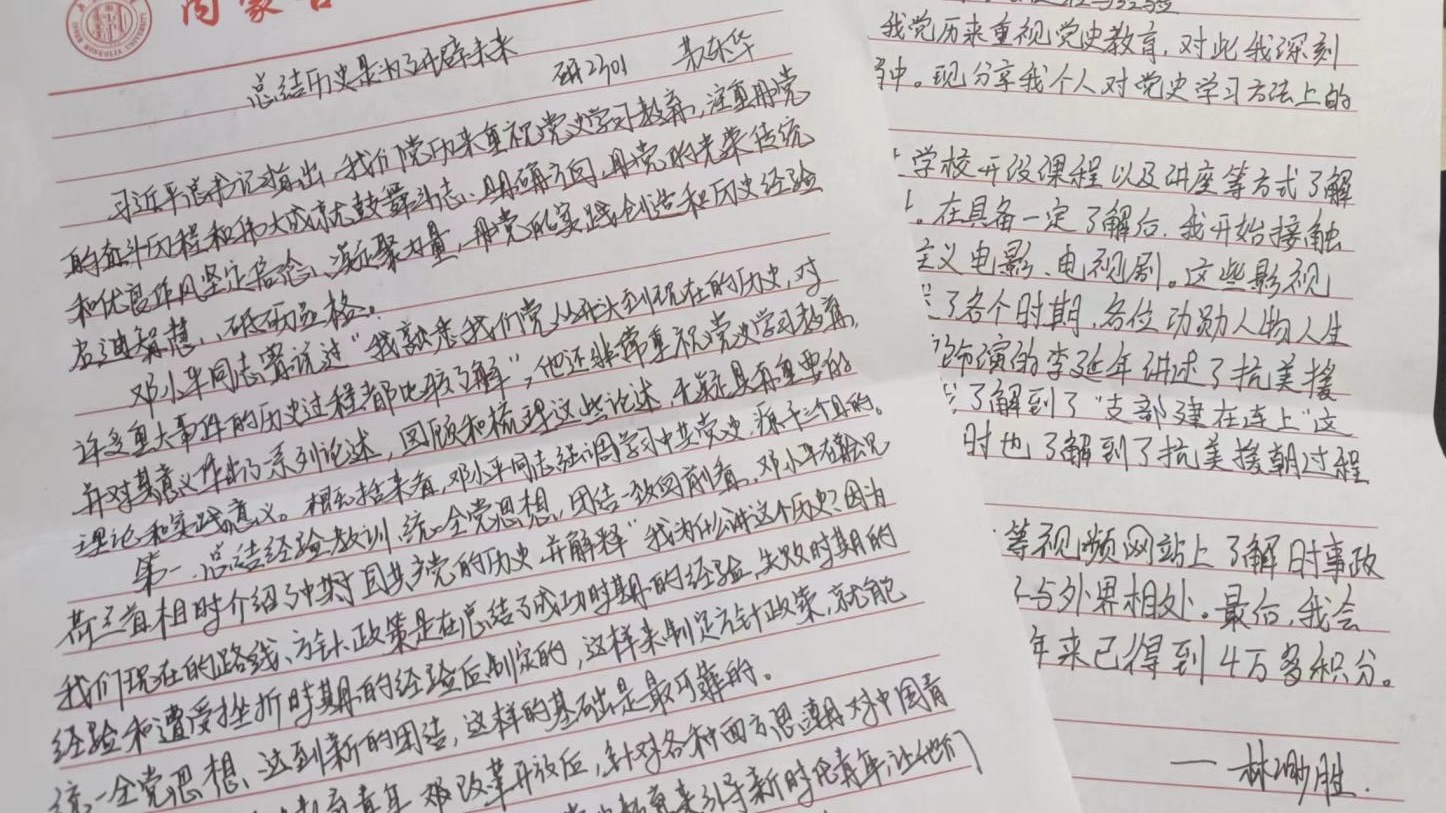 内蒙古
INNER MONGOLIA UNIVERSITY
总结历史是为了开辟未来
研2201
习近平总书记指出,我们党历来重视党史学习教育,注重用党
的奋斗历程和伟大成就鼓舞斗志、明确方向,用党的光荣传统
和优良作风坚定信念、凝聚力量,用党的实践创造和历史经验
启迪智慧、砥砺品格。
邓小平同志曾说过“我熟悉我们党从开头到现在的历史,对
许多重大事件的历史过程都比较了解”,他还非常重视党史学习教育,
并对其意义作出了系列论述,回顾和梳理这些论述,无疑具有重要的
理论和实践意义。概括来看,邓小平同志强调学习中共党史,源于三个目的。
第一,总结经验教训,统一全党思想,团结一致向前看,邓小平在会见
首相时介绍了中共党的历史,并解释“我为什么讲这个历史?因为
我们现在的路线、方针、政策是在总结了成功时期的经验、失败时期的
经验和遭受挫折时期的经验后制定的,这样来制定方针政策,就能
统一全党思想、达到新的团结,这样的基础是最可靠的。
教育青年 改革开放后,针对各种西方思潮对中国青
教育来引导新时代青年,让他们
我党历来重视党史教育,对此我深刻
中。现分享我个人对党史学习方法上的
学校开设课程以及讲座等方式了解
。在具备一定了解后,我开始接触
主义电影、电视剧。这些影视
了各个时期,各位功勋人物人生
饰演的李延年讲述了抗美援
了解到了“支部建在连上”这
时也了解到了抗美援朝过程
等视频网站上了解时事政
与外界相处。最后,我会
年来已得到4万多积分。